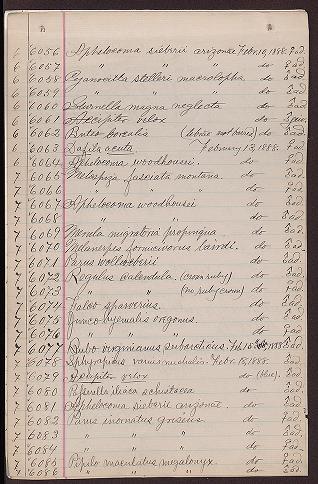 6 6056 Aphelocoma sieberii arizonae Febr. 10, 1888. ad.
6 6057 " " " do ad.
6 6058 Cyanocitta stelleri macrolopha. do ad.
6 6059 " " " do ad.
6 6060 Sturnella magna neglecta do ad.
6 6061 Accipiter velox do
6 6062 Buteo borealis do ad.
6 6063 Dafila acuta. February 13, 1888. ad.
6 6064 Aphelocoma woodhousei. do ad.
7 6065 Melospiza fasciata montana. do ad.
7 6066 " " " do ad.
7 6067 Aphelocoma woodhousei do ad.
7 6068 " " do ad.
7 6069 Merula migratoria propinqua do ad.
7 6070 Melanerpes formicivorus bairdi. do ad.
7 6071 Parus wollweberi do ad.
7 6072 Regulus calendula. (crown ruby) do ad.
7 6073 " " (no ruby crown) do ad.
7 6074 Falco sparverius. do ad.
7 6075 Junco hyemalis oregonus. do ad.
7 6076 " " " do ad.
7 6077 Bubo virginianus subarcticus. Feb. 1888. ad.
7 6078 Sphyrapicus varius nuchalis. Febr. 18, 1888. ad.
7 6079 Accipiter velox do (blue). ad.
7 6080 Passerella iliaca schistacea do ad.
7 6081 Aphelocoma sieberii arizonae. do ad.
7 6082 Parus inornatus griseus do ad.
7 6083 " " " do ad.
7 6084 " " " do ad.
7 6085 Pipilo maculatus megalonyx. do ad.
7 6086 " " " do ad.